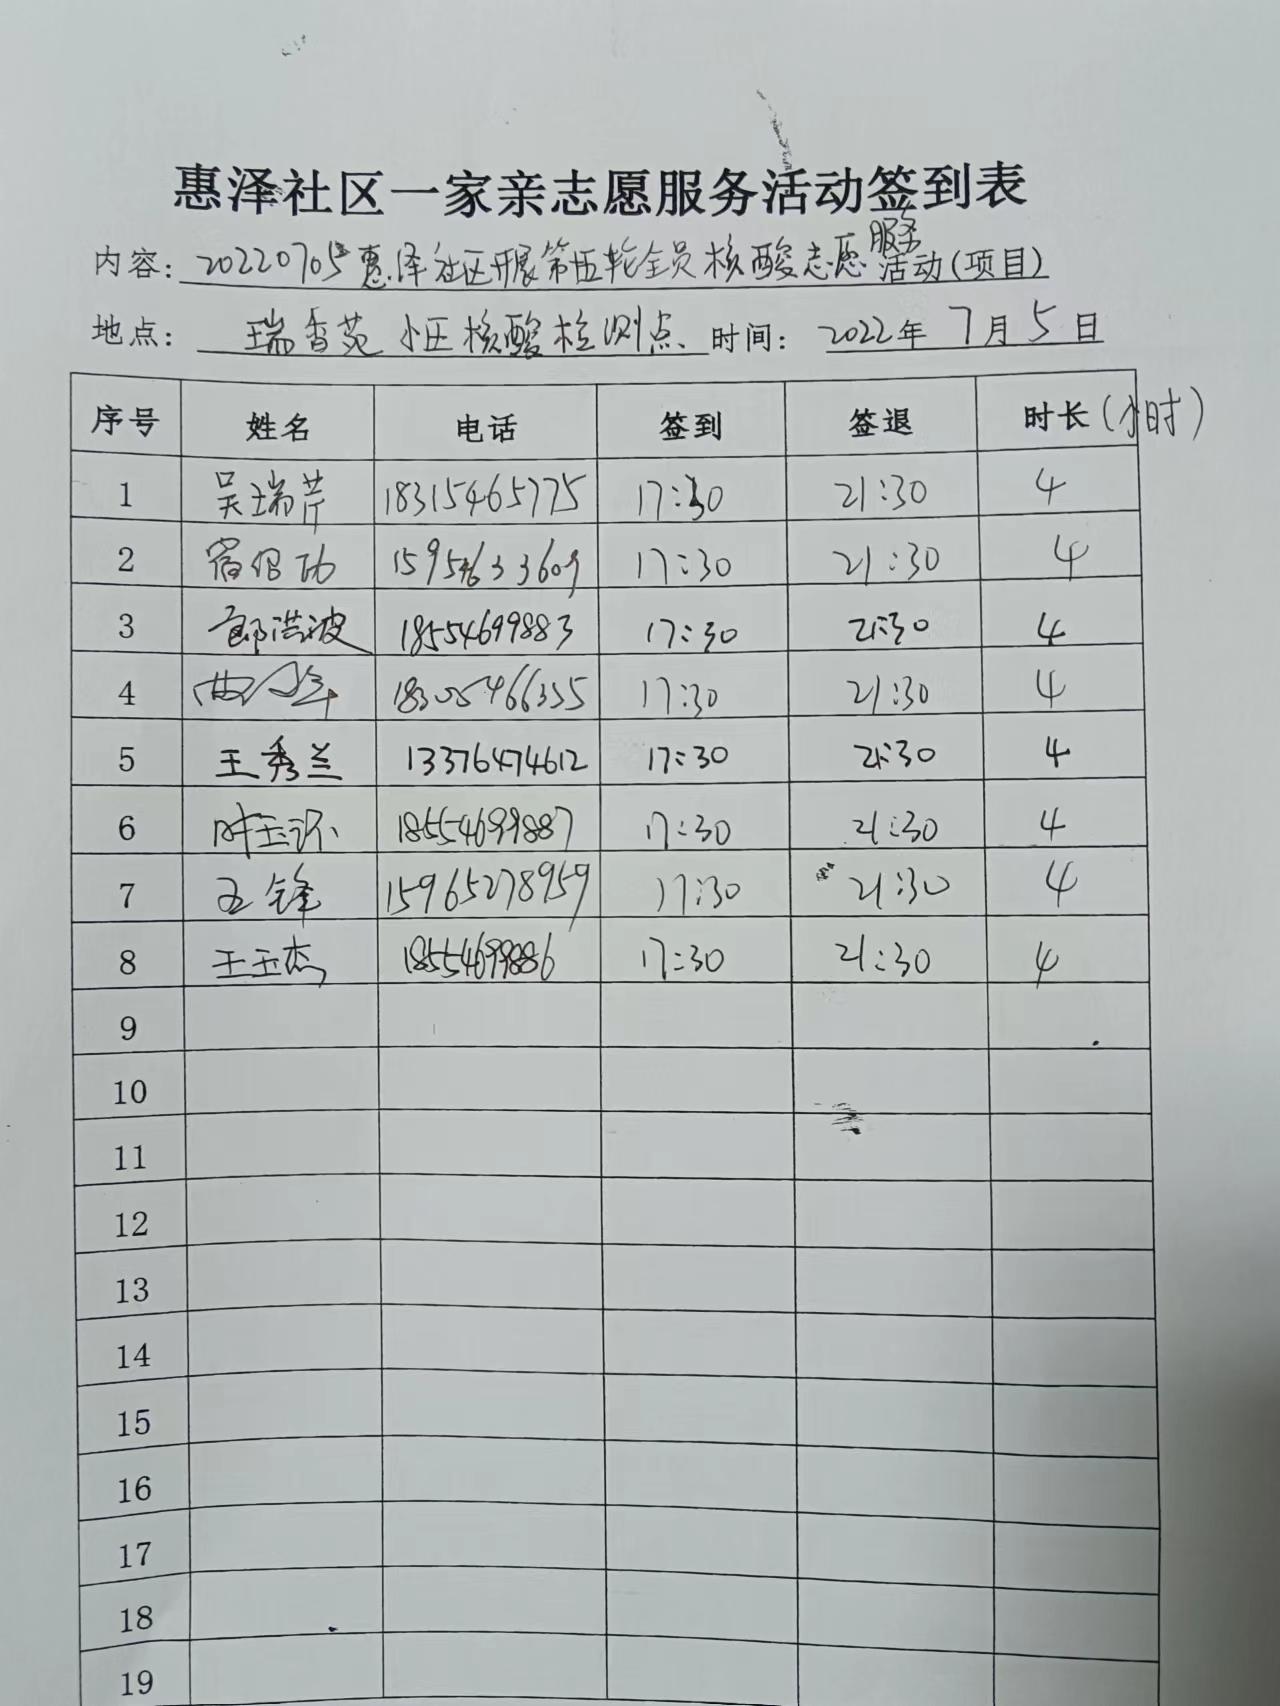 惠泽社区一家亲志愿服务活动签到表
内容：20220705惠泽社区开展第五轮全员核酸志愿服务活动(项目)
地点：瑞香苑小区核酸检测点 时间：2022年7月5日
序号 姓名 电话 签到 签退 时长(小时)
1 吴瑞芹 18315465775 17:30 21:30 4
2 15954633609 17:30 21:30 4
3 郎洪波 18554699883 17:30 21:30 4
4 17:30 21:30 4
5 王秀兰 13376474612 17:30 21:30 4
6 18554699887 17:30 21:30 4
7 王锋 15965278959 17:30 21:30 4
8 王玉杰 18554699886 17:30 21:30 4
9
10
11
12
13
14
15
16
17
18
19